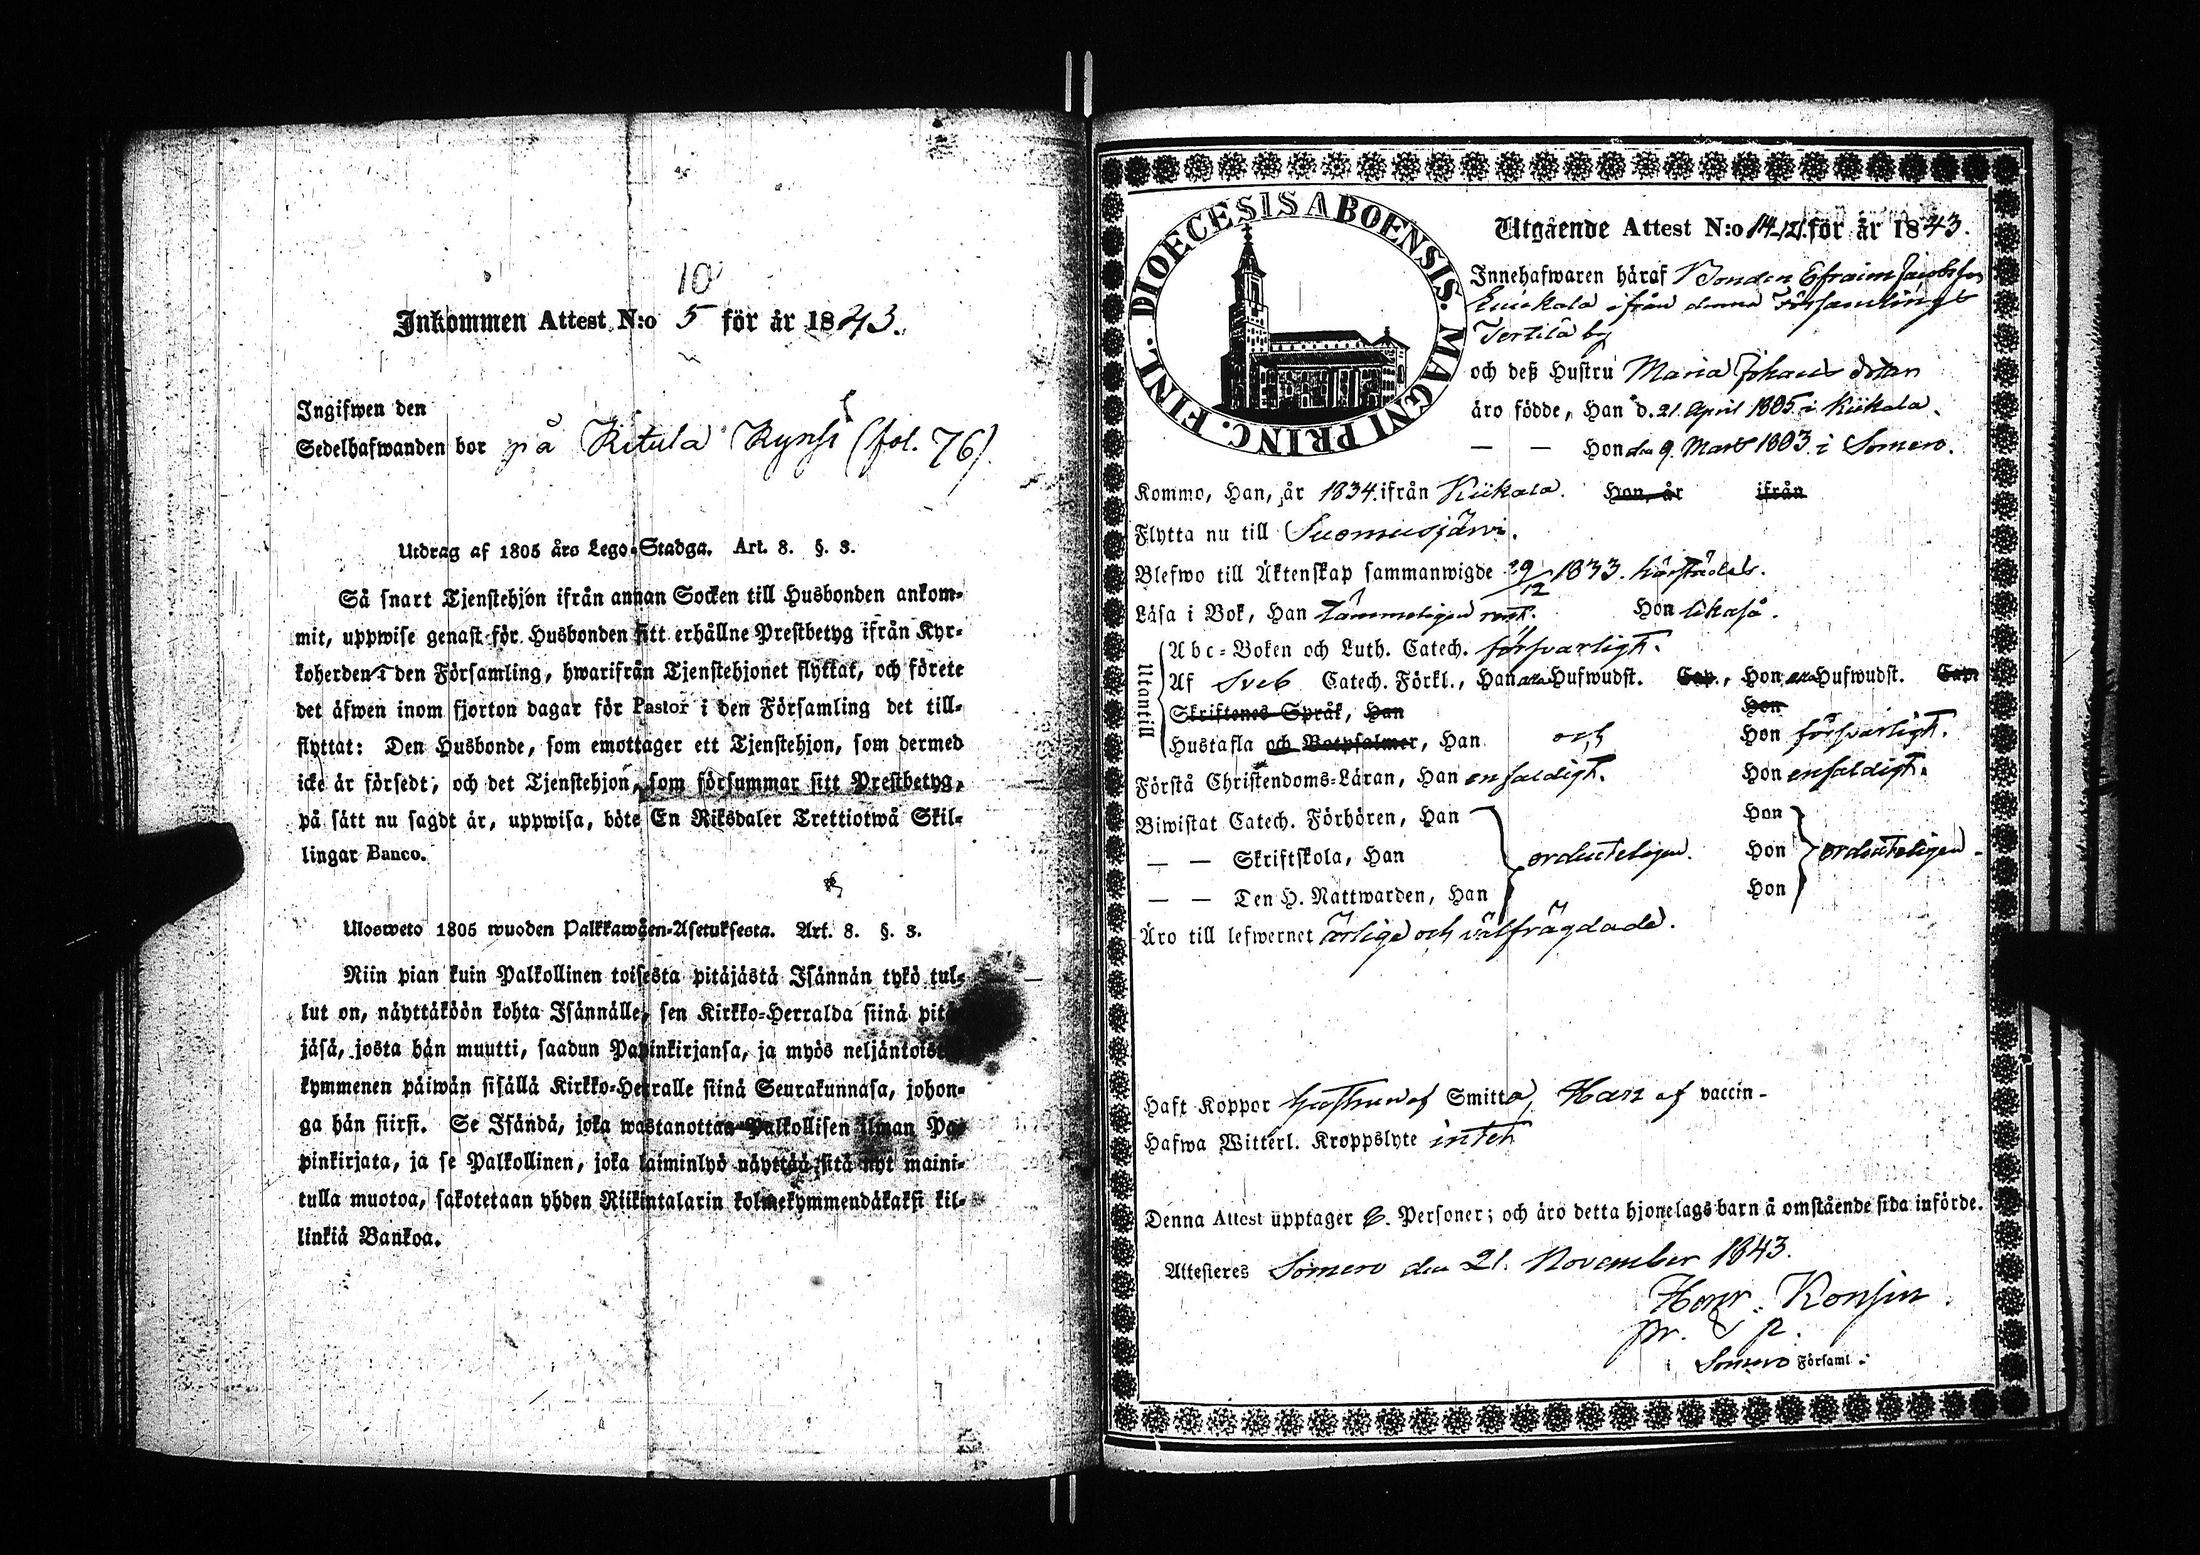 10
Inkommen Attest N:o 5 för år 1843.
Ingifwen den
Sedelhafwanden bor på Kitula Kynsi (fol. 76).
Utdrag af 1805 års Lego-Stadga. Art. 8. §. 3.
Så snart Tjenstehjon ifrån annan Socken till Husbonden ankom-
mit, uppwise genast för Husbonden sitt erhållne Prestbetyg ifrån Kyr-
koherden i den Församling, hwarifrån Tjenstehjonet flyttat, och förete
det äfwen inom fjorton dagar för Pastor i den Församling det till-
flyttat: Den Husbonde, som emottager ett Tjenstehjon, som dermed
icke är försedt, och det Tjenstehjon, som försummar sitt Prestbetyg,
på sätt nu sagdt är, uppwisa, böte En Riksdaler Trettiotwå Skil-
lingar Banco.
Ulosweto 1805 wuoden Palkkawäen-Asetuksesta. Art. 8. §. 3.
Niin pian kuin Palkollinen toisesta pitäjästä Isännän tykö tul-
lut on, näyttäköön kohta Isännälle, sen Kirkko-Herralda siinä pitä-
jäsä, josta hän muutti, saadun Papinkirjansa, ja myös neljäntoista-
kymmenen päiwän sisällä Kirkko-Herralle siinä Seurakunnasa, johon-
ga hän siirsi. Se Isändä, joka wastanottaa Palkollisen ilman Pa-
pinkirjata, ja se Palkollinen, joka laiminlyö näyttää sitä nyt maini-
tulla muotoa, sakotetaan yhden Riikintalarin kolmekymmendäkaksi kil-
linkiä Bankoa.
DIOECESIS ABOENSIS. MAGNI PRINC. FINL.
Utgående Attest N:o 14 för år 1843.
Innehafwaren häraf Bonden Efraim Jacobsson
Kiikala ifrån denna Församlings
Tertilä by
och deß Hustru Maria Johans dotter
äro födde, Han d. 21 April 1805 i Kiikala.
— — Hon den 9 Mars 1803 i Somero.
Kommo, Han, år 1834 ifrån Kiikala. Hon, år ifrån
Flytta nu till Suomusjärvi.
Blefwo till Äktenskap sammanwigde 29/12 1833. härstädes.
Läsa i Bok, Han tämmeligen rent. Hon likaså.
Utantill
Abc-Boken och Luth. Catech. försvarligt.
Af Sveb Catech. Förkl., Han alla Hufwudst. Cap., Hon alla Hufwudst. Cap.
Skriftenes Språk, Han Hon
Hustafla och Botpsalmer, Han och Hon försvarligt.
Förstå Christendoms-Läran, Han enfaldigt. Hon enfaldigt.
Biwistat Catech. Förhören, Han Hon
— — Skriftskola, Han ordenteligen. Hon ordenteligen.
— — Den H. Nattwarden, Han Hon
Äro till lefwernet ärlige och välfrägdade.
Haft Koppor Hustrun af Smitta, Han af vaccin-
Hafwa Witterl. Kroppslyte intet
Denna Attest upptager Personer; och äro detta hjonelags barn å omstående sida införde.
Attesteras Somero den 21. November 1843.
Henr. Konsin
pr. & p.
i Somero Församl.